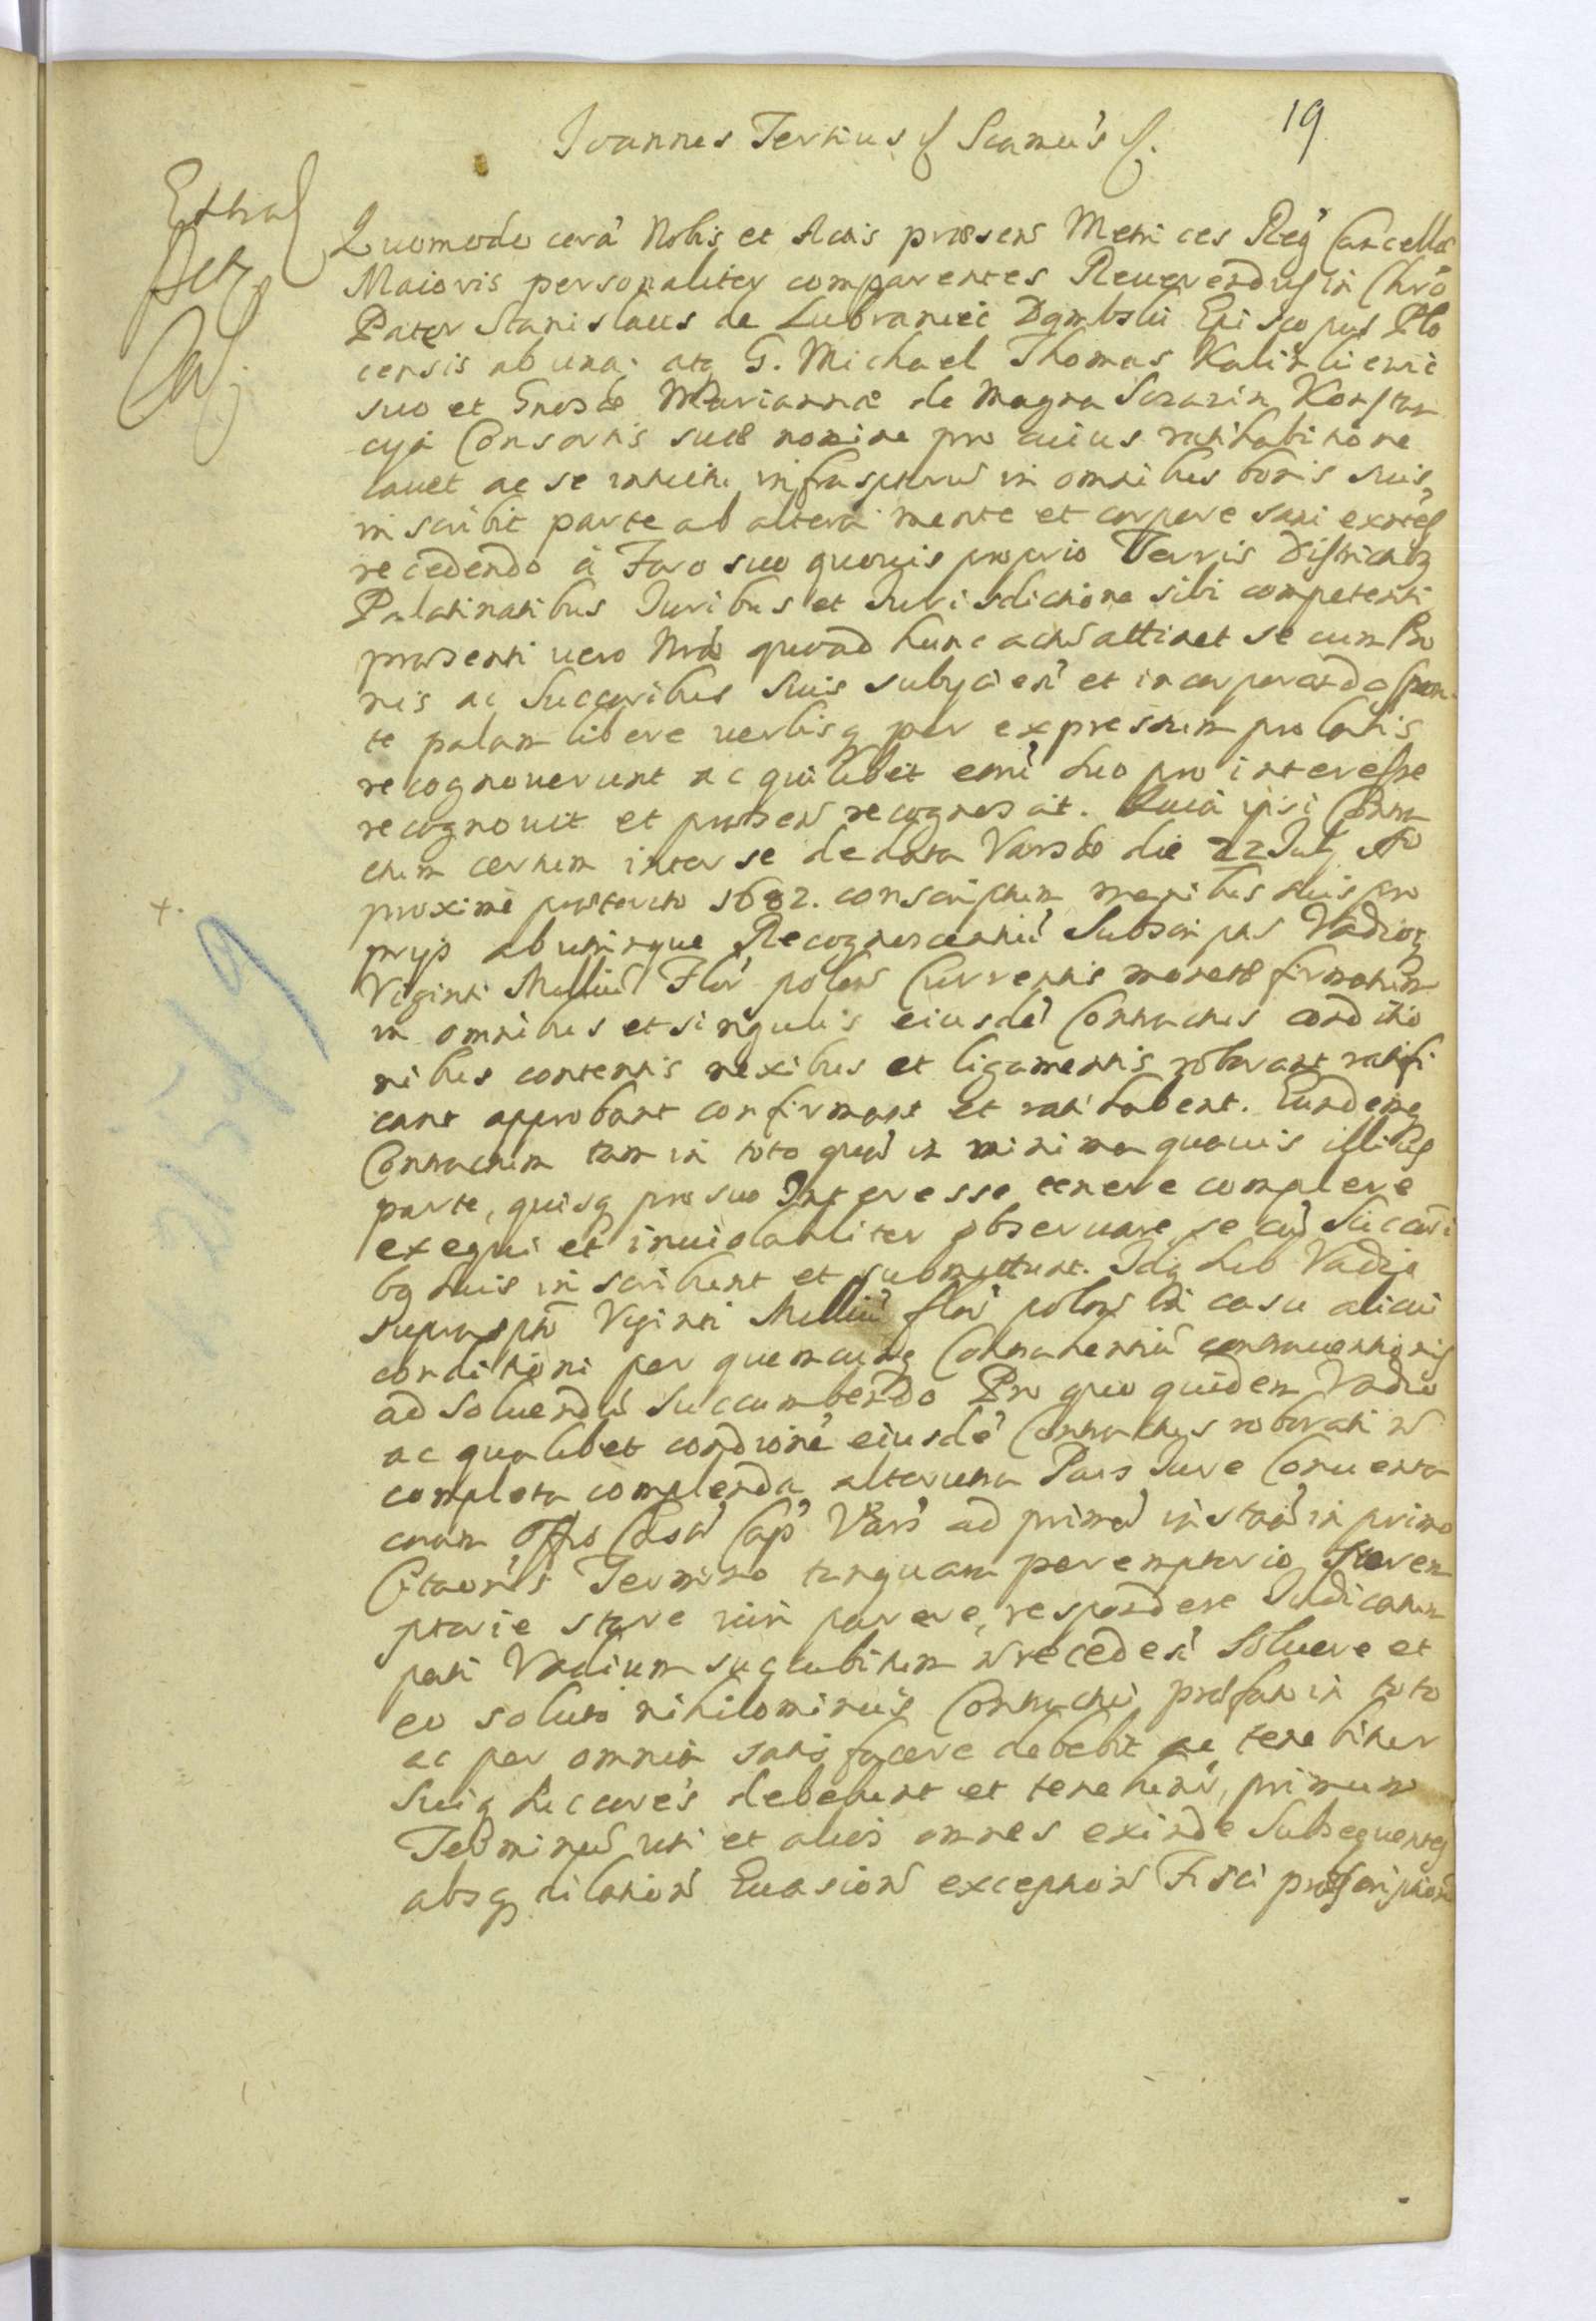 19
Ioannes Tertius Scamus
Quomodo corā Nobis et Actis praesen Metrices Regͥ Cancella
Maioris personaliter comparentes Reuerendus in Chrō
Pater Stanislaus de Lubraniec Dąmbski Episcopus Plo
censis ab una; atq G. Michael Thomas
suo et Gnosae Mariannae de Magna
Consortis suae nomine pro cuius ratihabitione
cauet ac se in omnibus bonis suis
inscribit parte ab altera mente et corpore sani
recedendo à Foro suo quouis proprio Terris Districtibq
Palatinatibus Iuribus et Iurisdictione sibi competenti
praesenti uero quoad hunc actū attinet se cum Bo
nis ac Succoribus Suis subijciēn et incorporando spon
te palam libere uerbisq per expressum prolatis
recognouerunt ac quilibet eorū suo pro interesse
recognouit et praesen recognoscit. Quià ipsi Contra
ctum certum inter se de data Varsae die 22 July Ao
proximè praeterito 1682. conscriptum manibus suis pro
prijs ab utrinque Recognoscentiū Subscriptis Vadioq
Viginti Milliū Flor polon Currentis monetae firmatum
in omnibus et singulis eiusdē Contractus conditio
nibus contentis nexibus et ligamentis roborant ratifi
cant approbant confirmant et ratihabent. Eundemq
Contractum tam in toto quā in minima quauis illius
parte, quisq pro suo Interesse tenere complere
exequi et inuiolabiliter obseruare se cū Succori
bq suis inscribunt et submittunt. Idq sub Vadio
suprasptō Viginti Milliū flor polon in casu alicui
conditioni per quemcunq Contrahentiū contrauentionis
ad soluendū Succumbendo Pro quo quidem Vadio
ac qualibet condicione eiusdē Contractus roborati n
completa complenda alterutra Pars Iure Conuenta
coram Offo Cap Vars ad primā instā in primo
Citaonis Termino tanquam peremptorio Perem
ptorie stare iuri parere, respondere Iudicatum
pati Vadium succubitum n recedēn Soluere et
eo soluto nihilominus Contractui praefato in toto
ac per omnia satisfacere debebit ac tenebitur
Suiq Succores debebunt et tenebunr, primum
Terminū uti et alios omnes exinde Subsequentes
absq dilation Euasion exception Fisci praescription